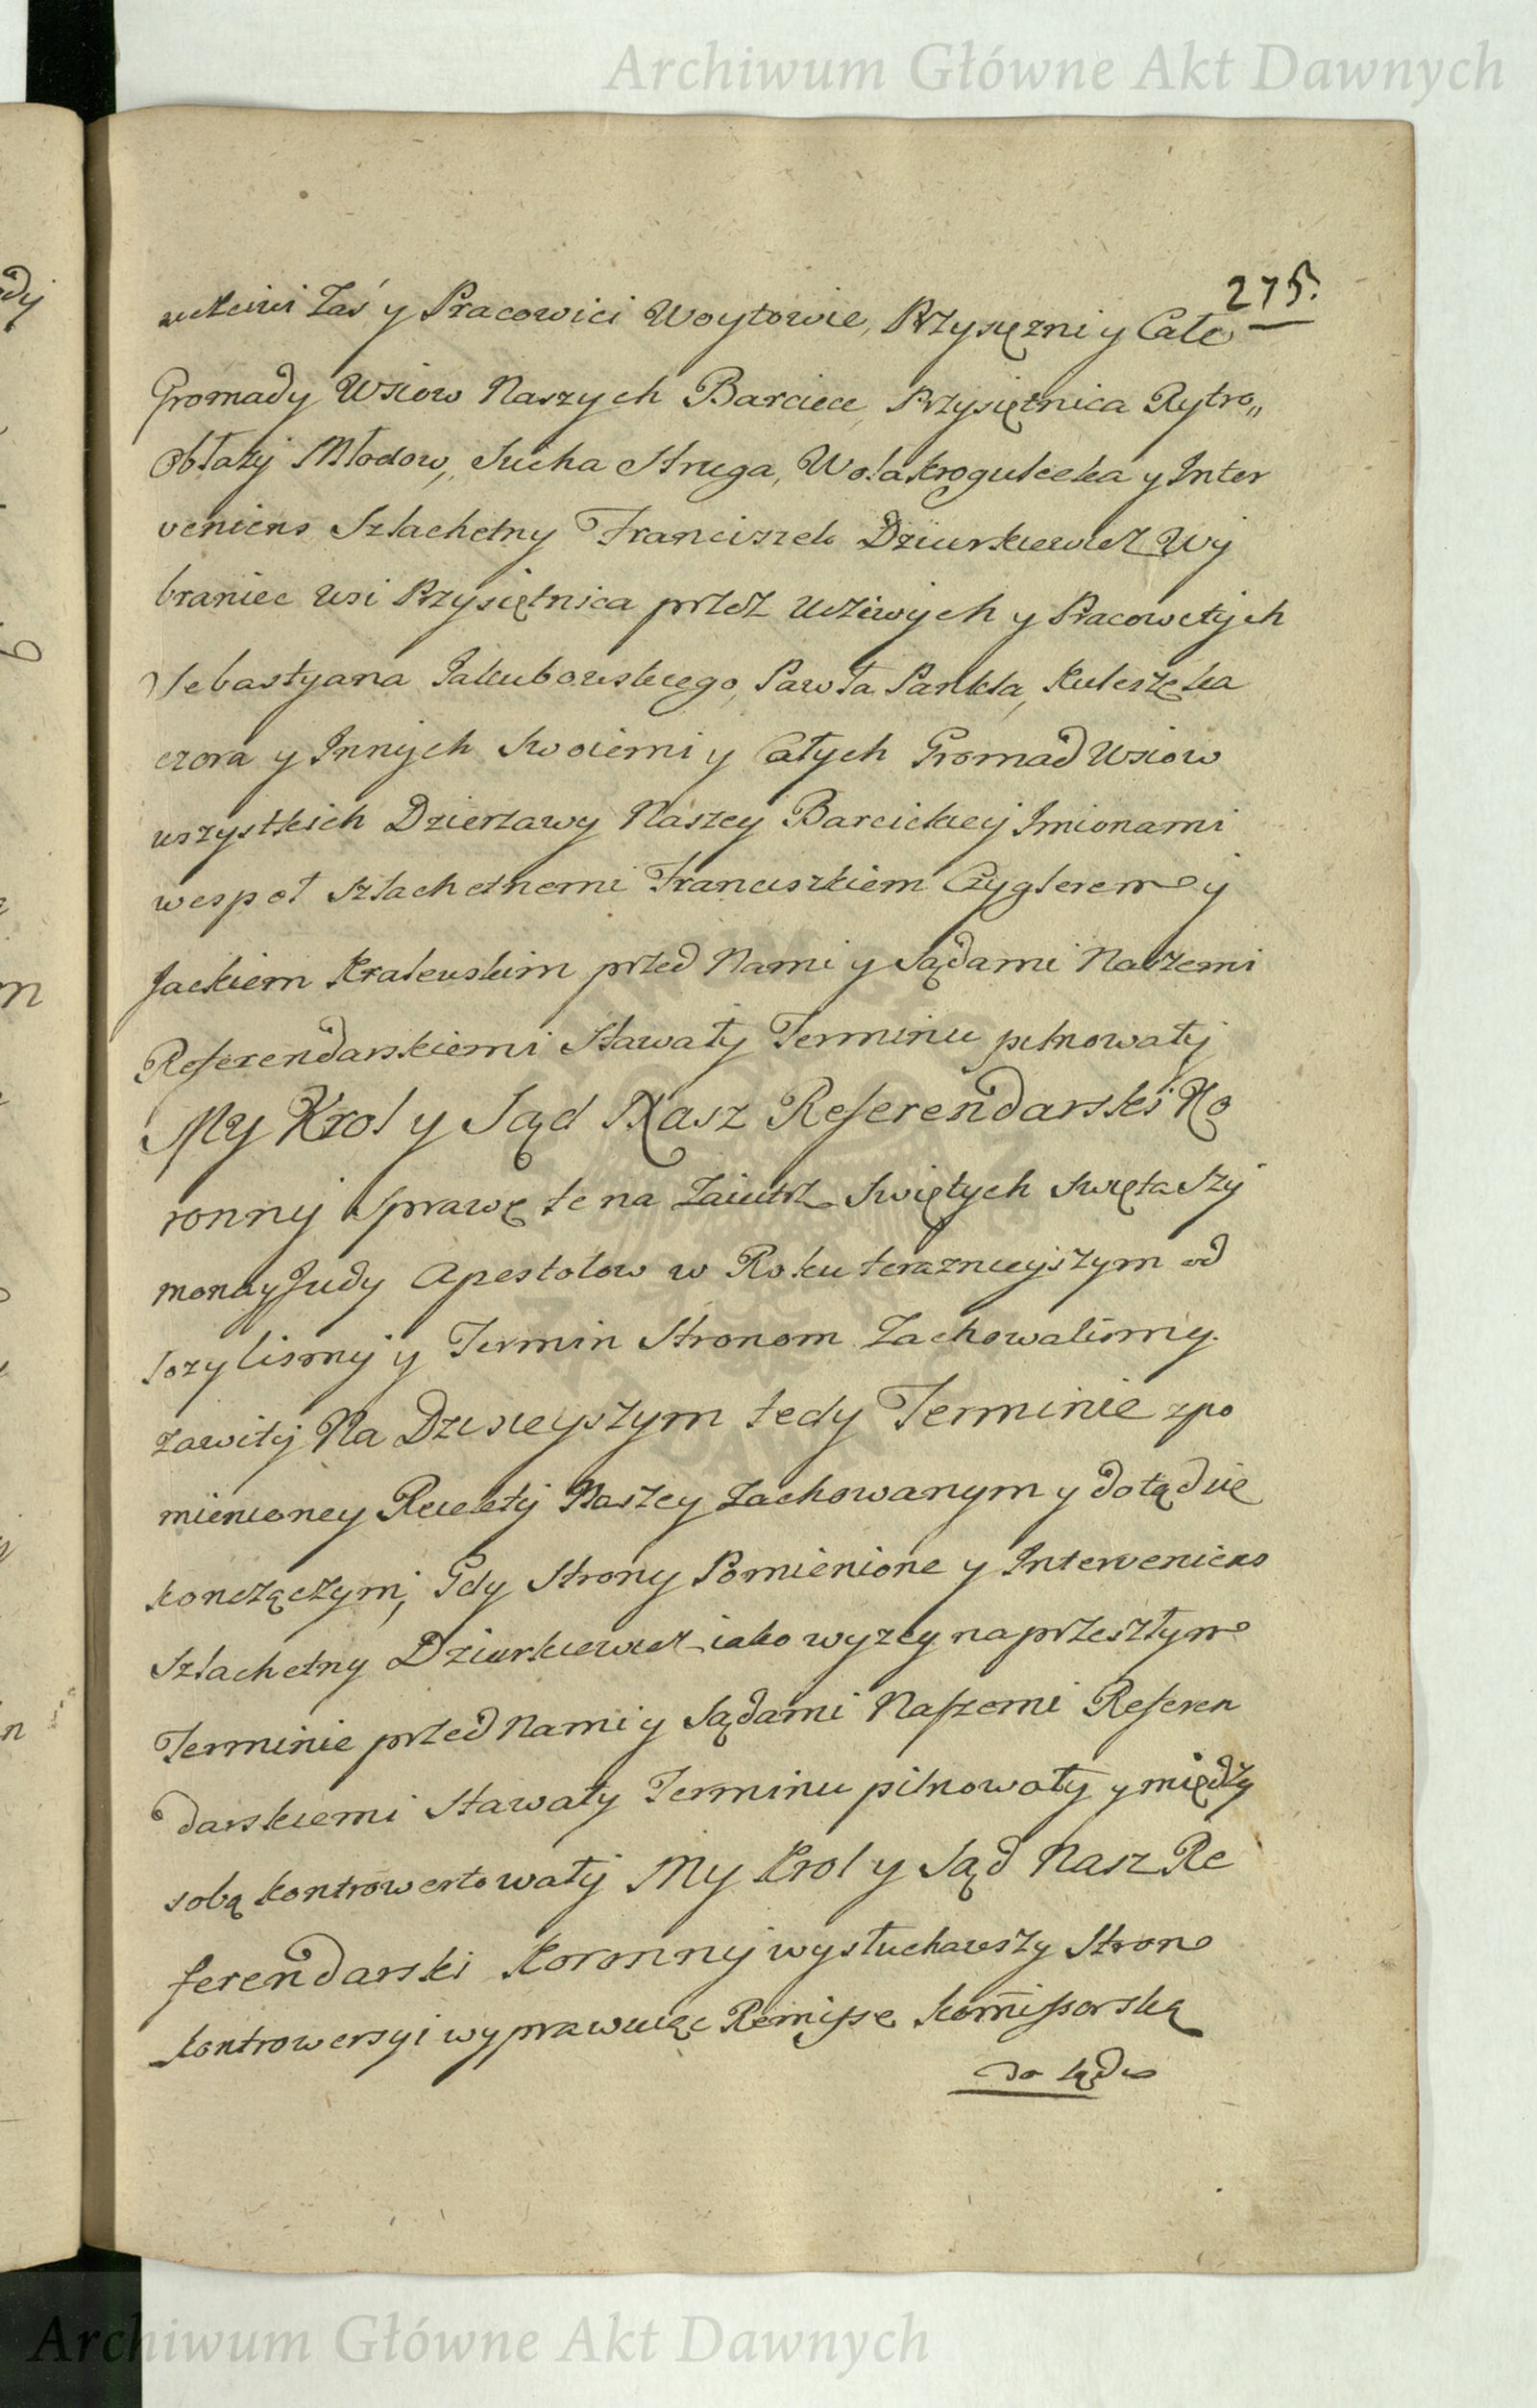 Archiwum Główne Akt Dawnych
275.
uczciwi Zaś y Pracowici Woytowie, Przysięzni y Całe
Gromady Wsiow Naszych Barcice, Przysietnica Rytro„
Obłazy Młodow, Sucha Struga, Wola Krogulecka y Inter
veniens Szlachetny Franciszek Dziurkiewicz Wy
braniec wsi Przysiętnica przez Uczciwych y Pracowitych
Sebastyana Jakubowskiego, Pawła Pankla,
czora y Innych Swoiemi y Całych Gromad Wsiow
wszystkich Dzierzawy Naszey Barcickiey Imionami
wespoł Szlachetnemi Franciszkiem Cyglerem y
Jackiem Kralewskim przed Nami y Sądami Naszemi
Referendarskiemi Stawały Terminu pilnowały
My Krol y Sąd Nasz Referendarski Ko
ronny Sprawę te na Zaiutrz Swiętych Swięta Szy
mona y Judy Apostołow w Roku teraznieyszym od
łozylismy y Termin Stronom Zachowalismy.
zawity Na Dzisieyszym tedy Terminie zpo
mienioney Reiekty Naszey Zachowanym y dotąd się
konczączym, Gdy Strony Pomienione y Interveniens
Szlachetny Dziurkiewicz iako wyzey na przeszłym
Terminie przed Nami y Sądami Naszemi Referen
darskiemi Stawały Terminu pilnowały y między
sobą kontrowertowały My Krol y Sąd Nasz Re
ferendarski Koronny wysłuchawszy Stron
kontrowersyi wyprawuiąc Remissę Kommissorską
do Sądu
Archiwum Główne Akt Dawnych